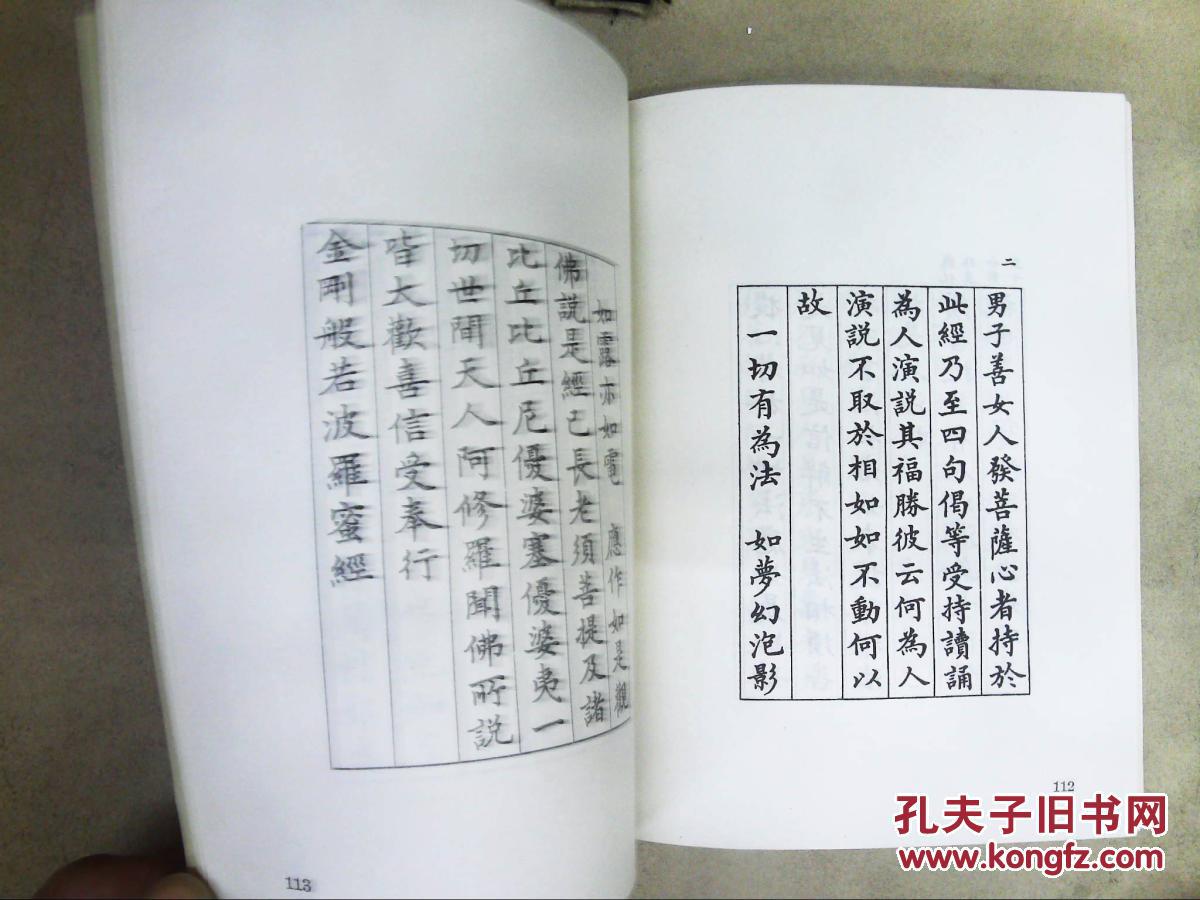 二
男子善女人發菩薩心者持於
此經乃至四句偈等受持讀誦
為人演説其福勝彼云何為人
演説不取於相如如不動何以
故
一切有為法 如夢幻泡影
112
如露亦如電 應作如是觀
佛説是經已長老須菩提及諸
比丘比丘尼優婆塞優婆夷一
切世間天人阿修羅聞佛所説
皆大歡喜信受奉行
金剛般若波羅蜜經
113
孔夫子旧书网
www.kongfz.com